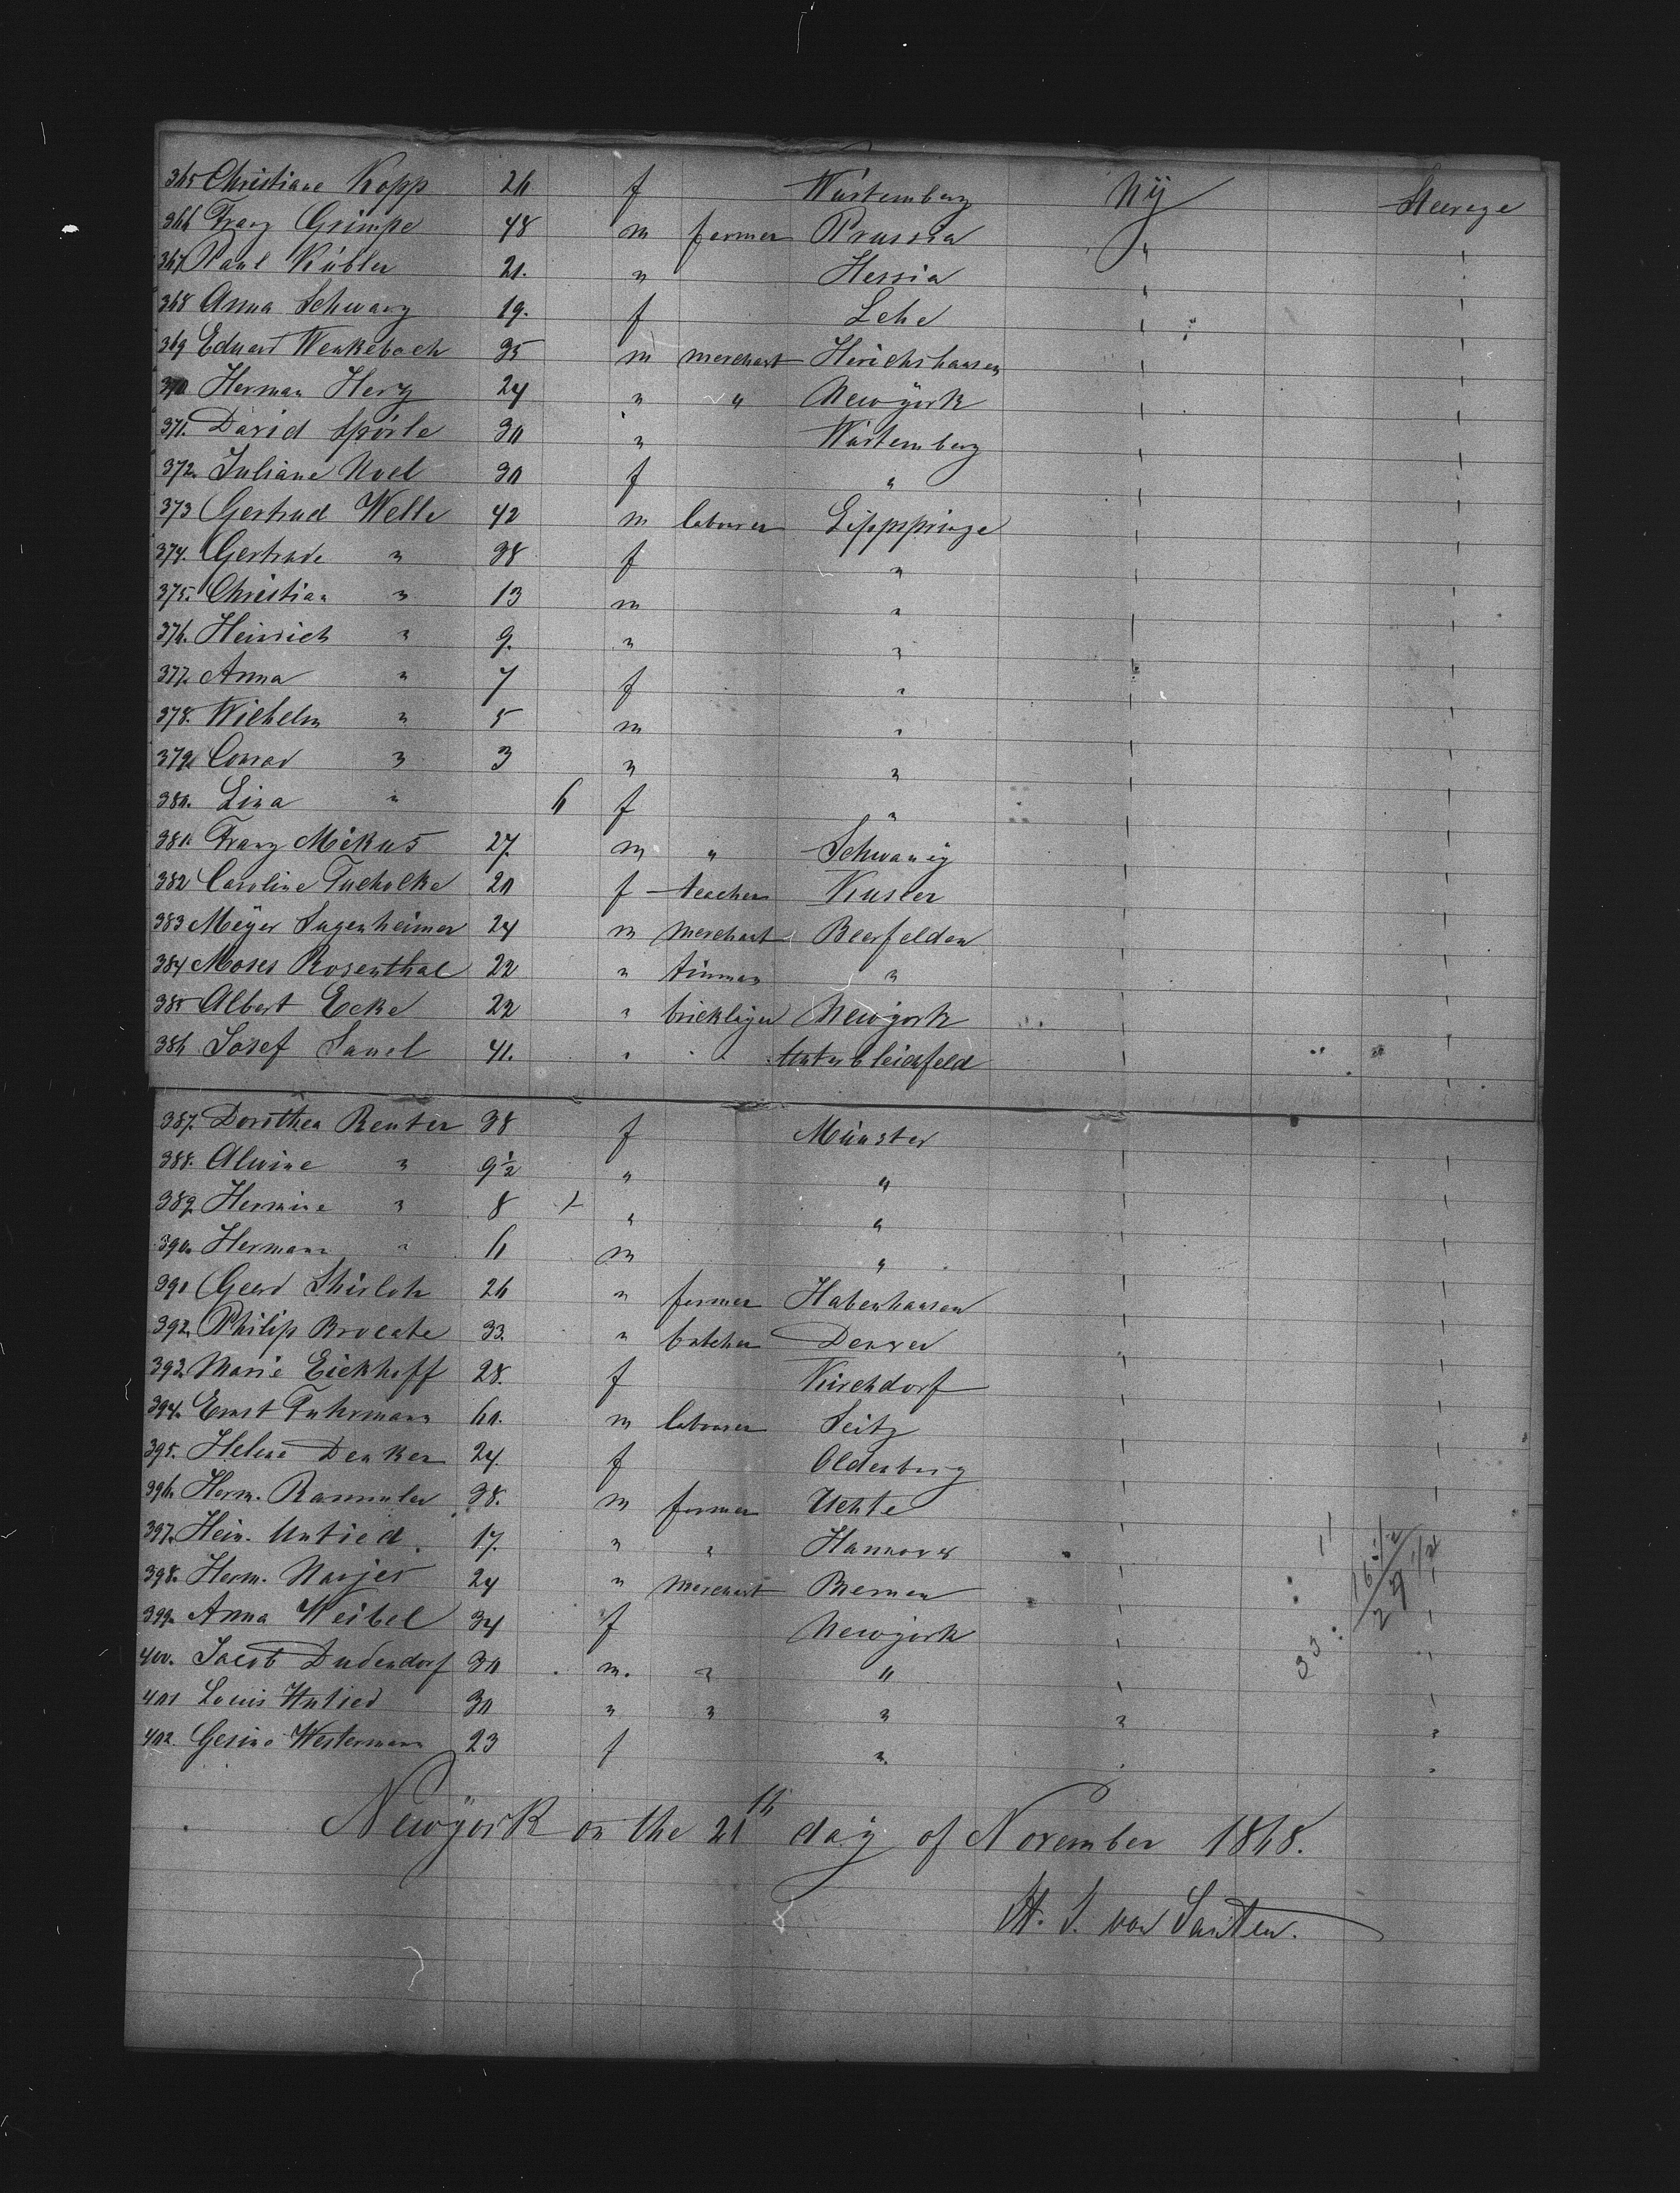 365 Christiane Kopp 26 f Würtemberg NY Steerage
366 Franz Grimpe 48 m farmer Prussia " "
367 Paul Kübler 21. " Hessia " "
368 Anna Schwarz 19. f Lehe " "
369 Eduard Wenkebach 35 m merchant " "
370 Herman Herz 24 " " Newÿork " "
371. David Spörle 30 " Würtemberg " "
372. Juliane Noel 30 f " " "
373 Gertrud Welle 42 m laborer Lippspringe " "
374. Gertrude " 38 f " " "
375. Christian " 13 m " " "
376. Heinrich " 9. " " " "
377. Anna " 7 f " " "
378. Wilhelm " 5 m " " "
379. Conrad " 3 " " " "
380. Lina " 6 f " " "
381. Franz Mikus 27. m " Schwaneÿ " "
382 Caroline Tucholke 20 f teacher " "
383 Meÿer Sugenheimer 24 m merchant Beerfelden " "
384 Moses Rosenthal 22 " tinman " " "
385 Albert Ecke 22 " bricklayer Newÿork " "
386 Josef Sauel 41. " " Unterbleichfeld " "
387. Dorothea Reuter 38 f Münster " "
388. Alwine " 9½ " " " "
389. Hermine " 8 " " " "
390. Hermann " 6 m " " "
391 Geerd 26 " farmer Habenhausen " "
392. Philip Brocate 33. " butcher Denver " "
393. Marie Eickhoff 28. f Kirchdorf " "
394. Ernst Fuhrmann 60. m laborer Seitz " "
395. Helene Denker 24. f Oldenburg " "
396. Herm. 38. m farmer Uchte " "
397. Hein. Untied. 17. " " Hannover " "
398. Herm. Narjes 24 " merchant Bremen " "
399. Anna Weibel 34 f Newÿork " "
400. Jacob Dudendorf 30 m. " " " "
401 Louis Untied 30 " " " " "
402. Gesine Westermann 23 f " " "
Newÿork on the 21th day of November 1868.
H. S. von Santen.